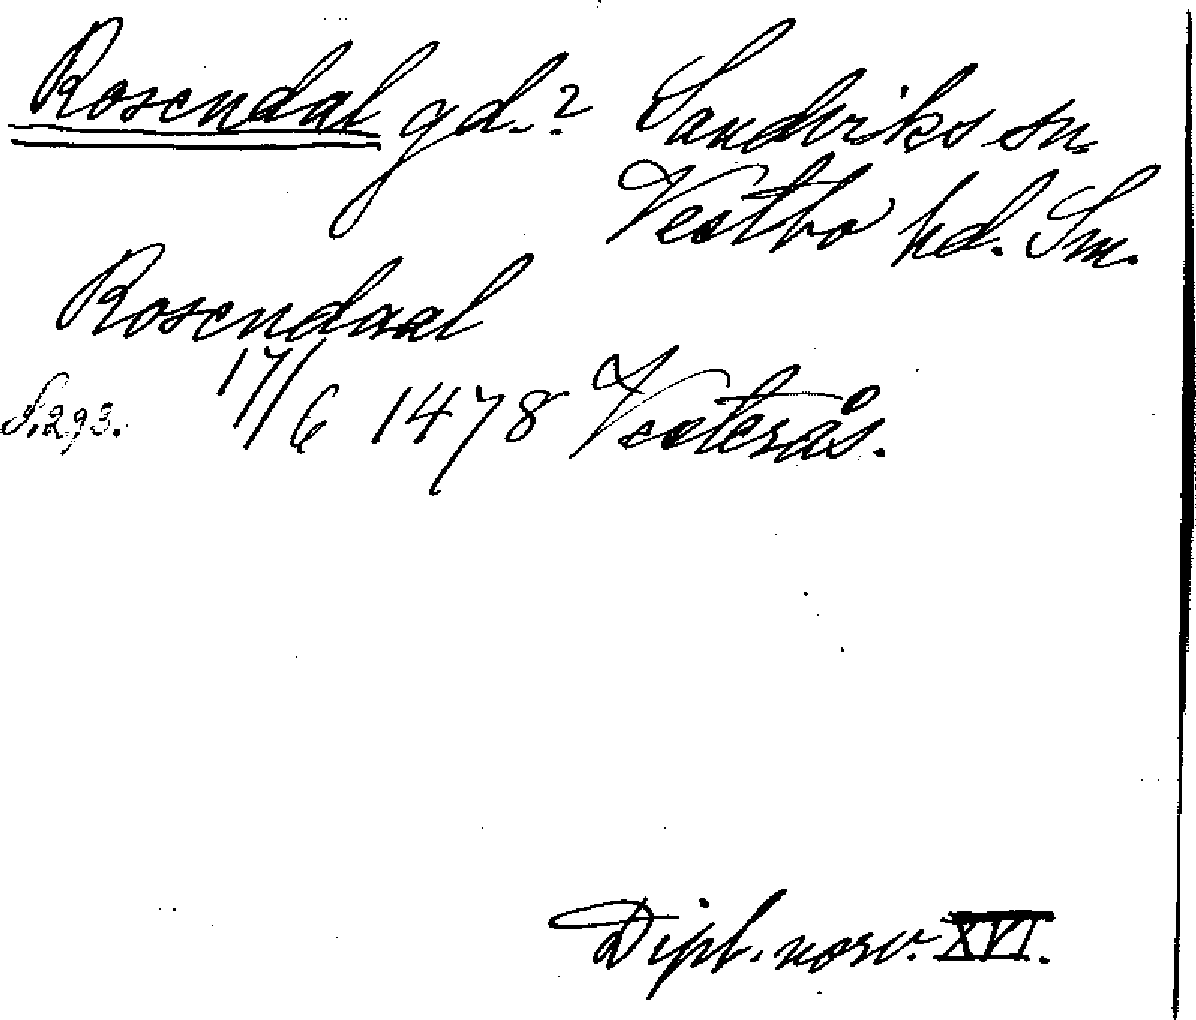 Rosendal gd.? Sandviks sn.
Vestbo hd. Sm.
Rosendaal
S. 293. 17/6 1478 Vesterås.
Dipl. norv. XVI.